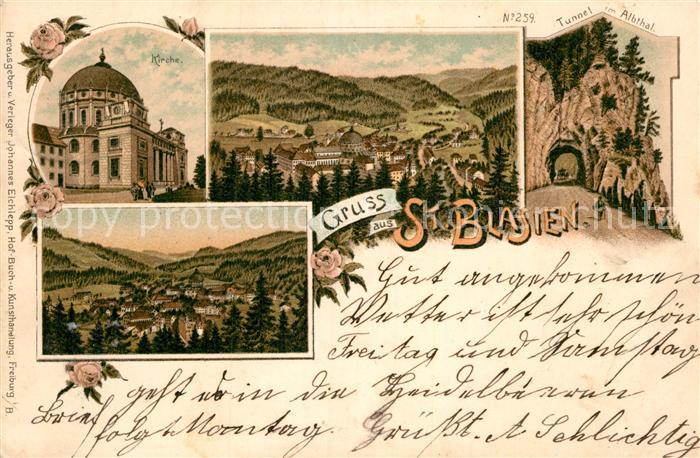 Nº 259.
Tunnel im Albthal.
Kirche.
Herausgeber u. Verleger Johannes Elchlepp, Hof-Buch- u. Kunsthandlung, Freiburg i/B.
Gruss
aus
St. BLASIEN.
Gut angekommen
Wetter ist sehr schön
Freitag und Samstag
geht es in die Heidelbeeren
Brief folgt Montag. Grüßt. A Schlichtig
copyright by postcard.com